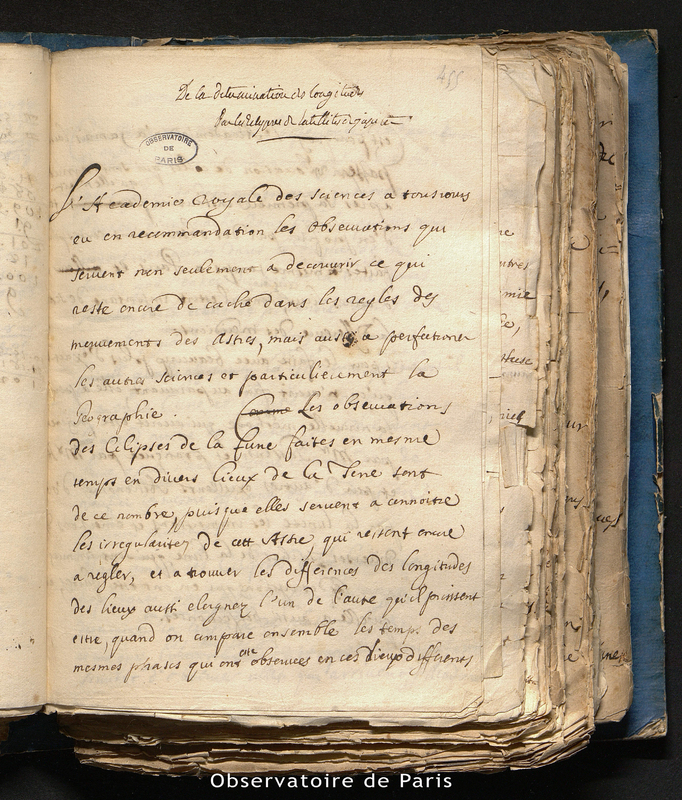 455
De la determination des longitudes
Par les Eclypses des satellites de jupiter
OBSERVATOIRE
DE
PARIS
L'Academie Royale des sciences a tousiours
eu en recommandation les Observations qui
servent non seulement a decouvrir ce qui
reste encore de caché dans les regles des
mouvements des Astres, mais aussi a perfectioner
les autres sciences et particulierement la
Geographie. Comme Les observations
des Eclipses de la Lune faites en mesme
temps en divers lieux de la Terre sont
de ce nombre, puisque elles servent a connoitre
les irregularitez de cett Astre, qui restent encore
a regler, et a trouver les differences des longitudes
des lieux aussi eloignez l'un de l'autre qu'il puissent
estre, quand on compare ensemble les temps des
mesmes phases qui ont esté observées en ces lieux differents
Observatoire de Paris